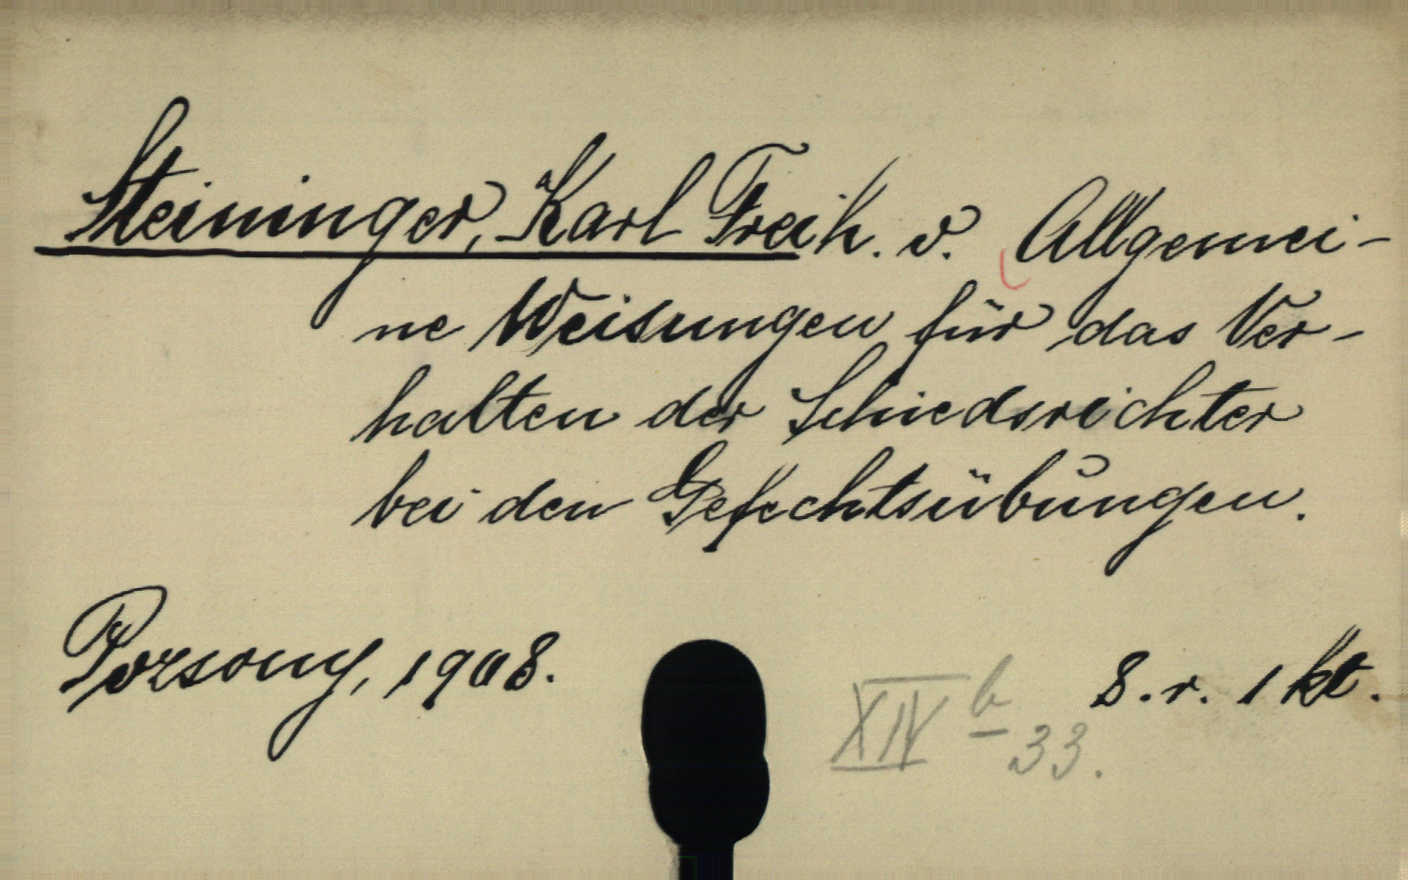 Steininger, Karl Freih. v. Allgemei-
ne Weisungen für das Ver-
halten der Schiedsrichter
bei den Gefechtsübungen.
Pozsony, 1908.
8.r. 1 kt.
XIV b 33.